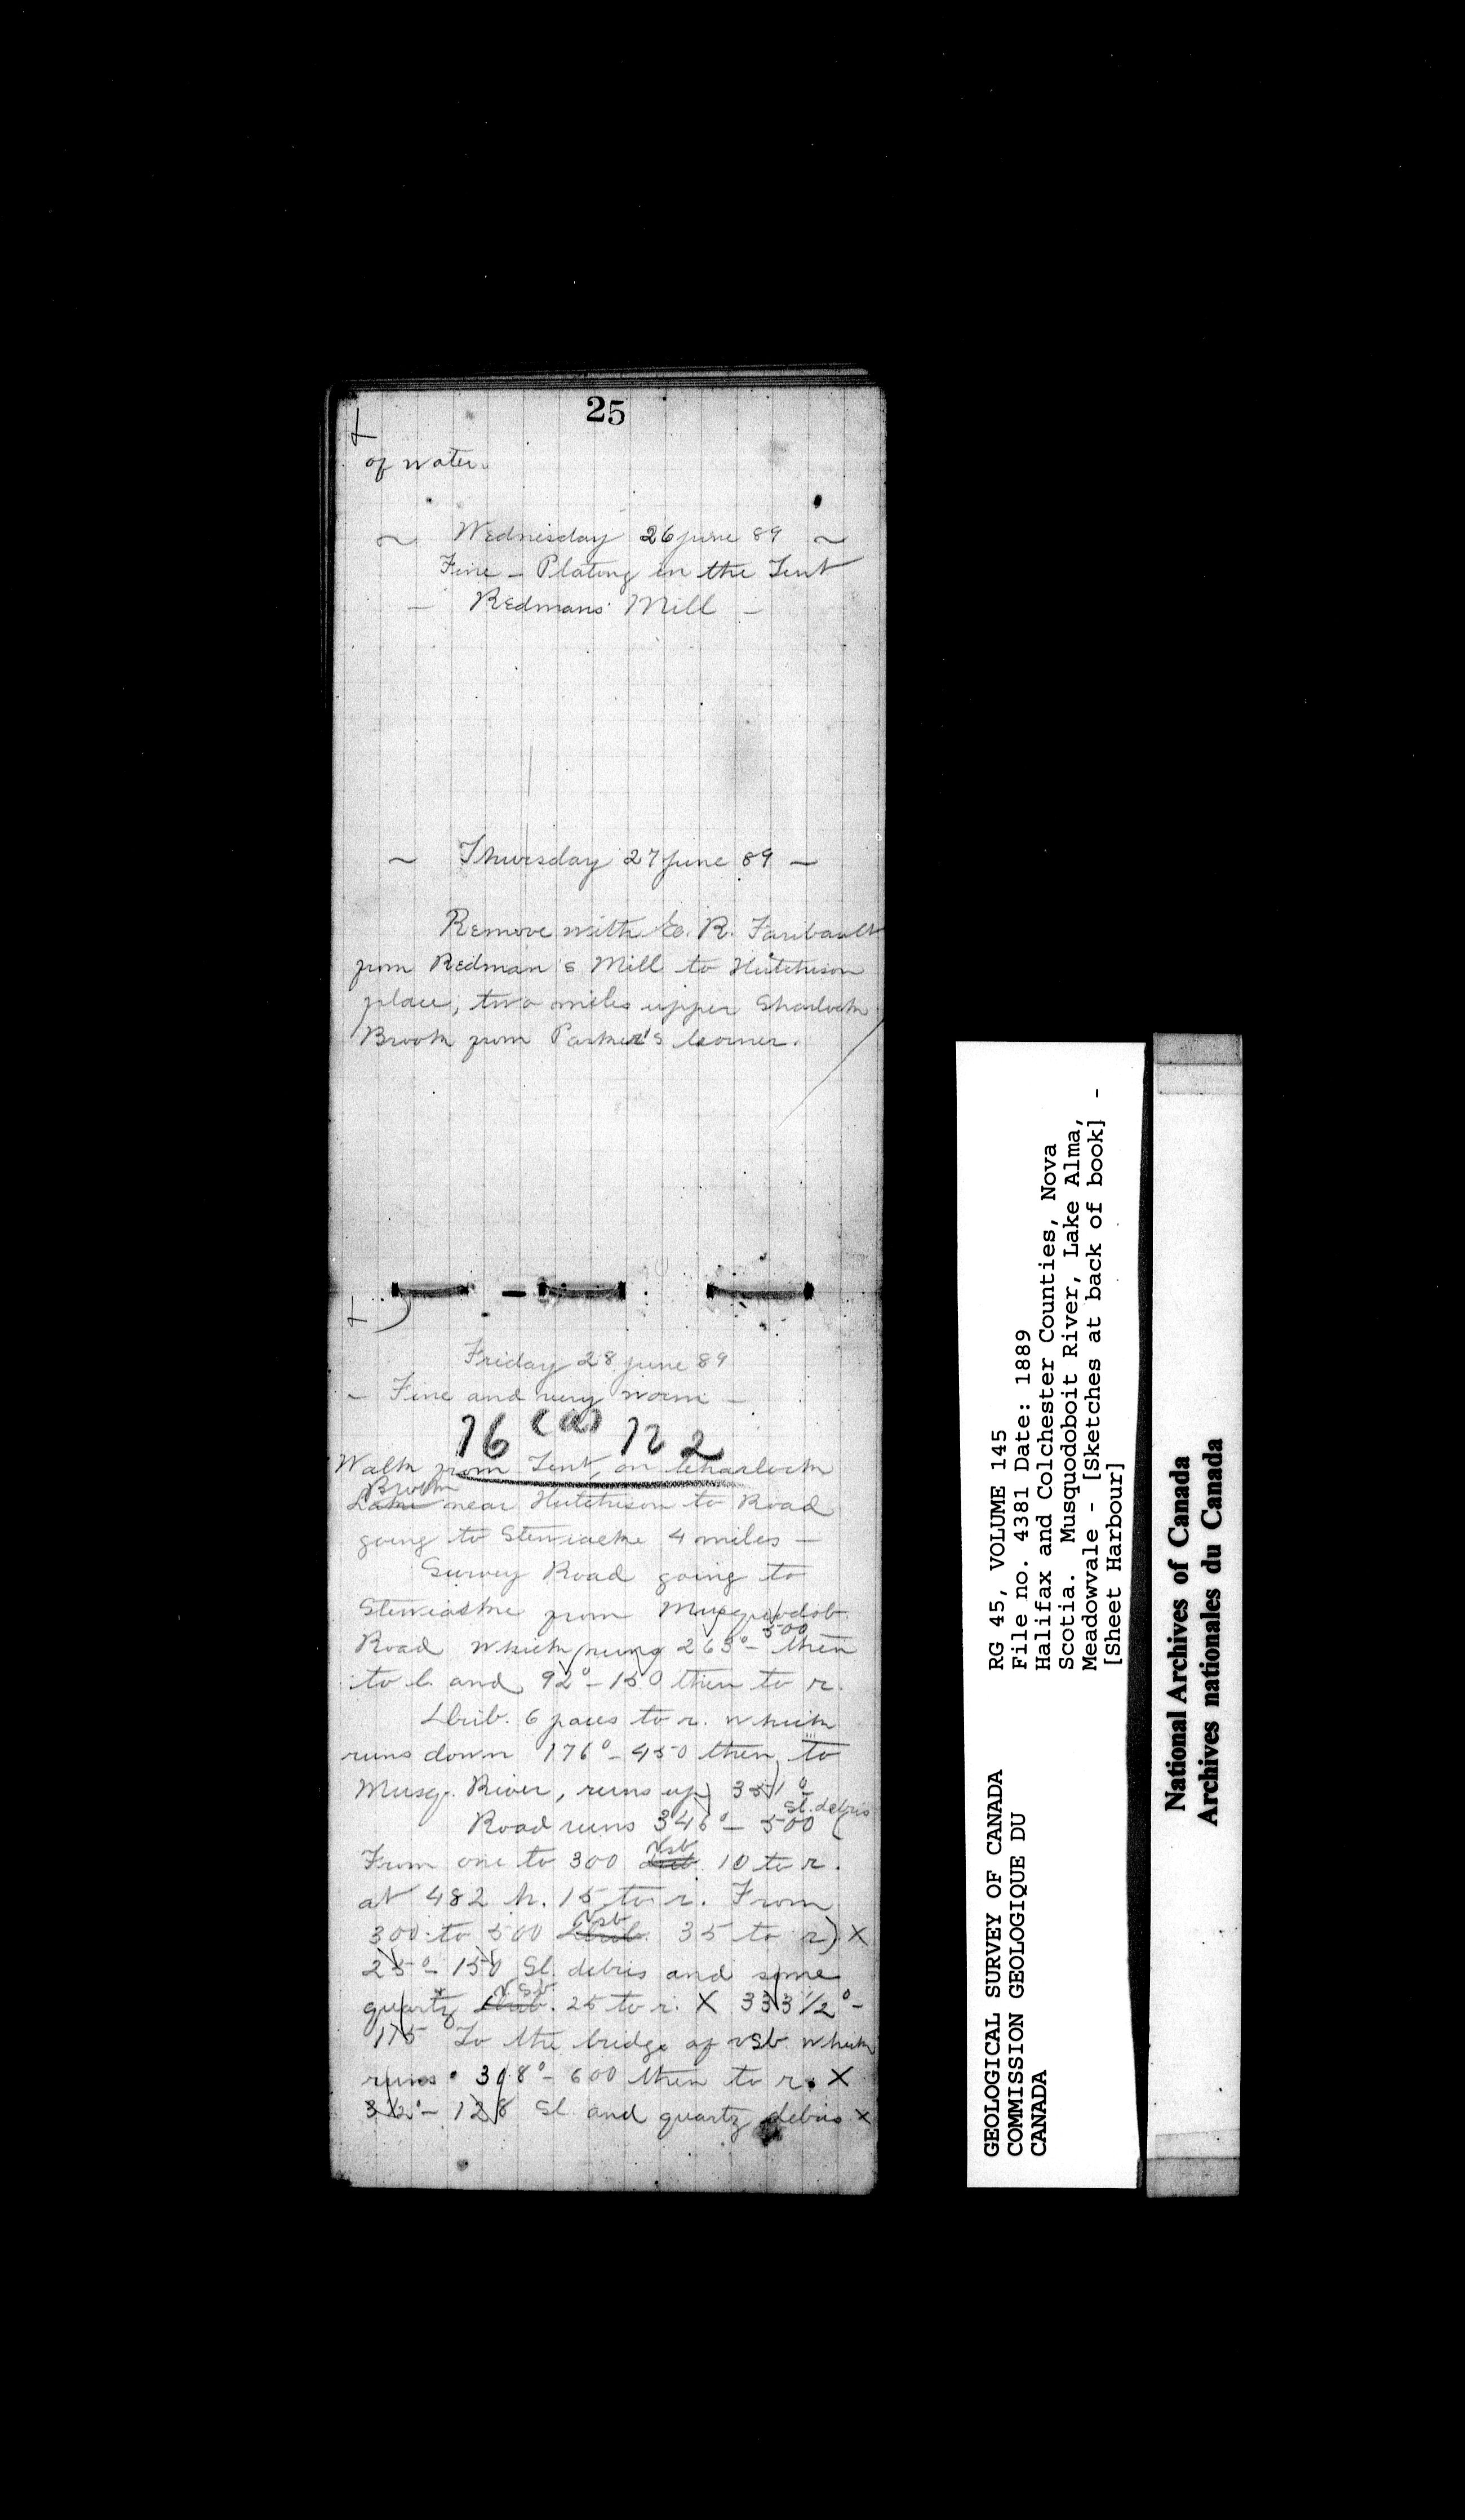 25
of water.
~ Wednesday 26 june 89 ~
Fine - Plating in the Tent
- Redmans Mill -
~ Thursday 27 june 89 -
Remove with E. R. Faribault
from Redman's Mill to Hutchison
place, two miles upper Sharlock
Brook from Parker's corner.
Friday 28 june 89
- Fine and very warm -
76 (a) 122
Walk from Tent, on Charlock
Brook
Lake near Hutchison to Road
going to Stewiacke 4 miles -
Survey Road going to
Stewiacke from Musquodob.
500
Road which runs 263° - then
to l. and 92° - 150 then to r.
6 paces to r. which
runs down 176° - 450 then to
Musq. River, runs up 351°
Sl. debris
Road runs 346° - 500 (
vsb
From one to 300 10 to r.
at 482 h. 15 to r. From
vsb
300 to 500 35 to r) X
25° - 150 Sl. debris and some
vsb
quartz 25 to r. X 333 1/2° -
175 To the bridge of vsb which
runs 308° - 600 then to r. X
312° - 128 Sl. and quartz debris X
GEOLOGICAL SURVEY OF CANADA
COMMISSION GEOLOGIQUE DU
CANADA
RG 45, VOLUME 145
File no. 4381 Date: 1889
Halifax and Colchester Counties, Nova
Scotia. Musquodoboit River, Lake Alma,
Meadowvale - [Sketches at back of book] -
[Sheet Harbour]
National Archives of Canada
Archives nationales du Canada